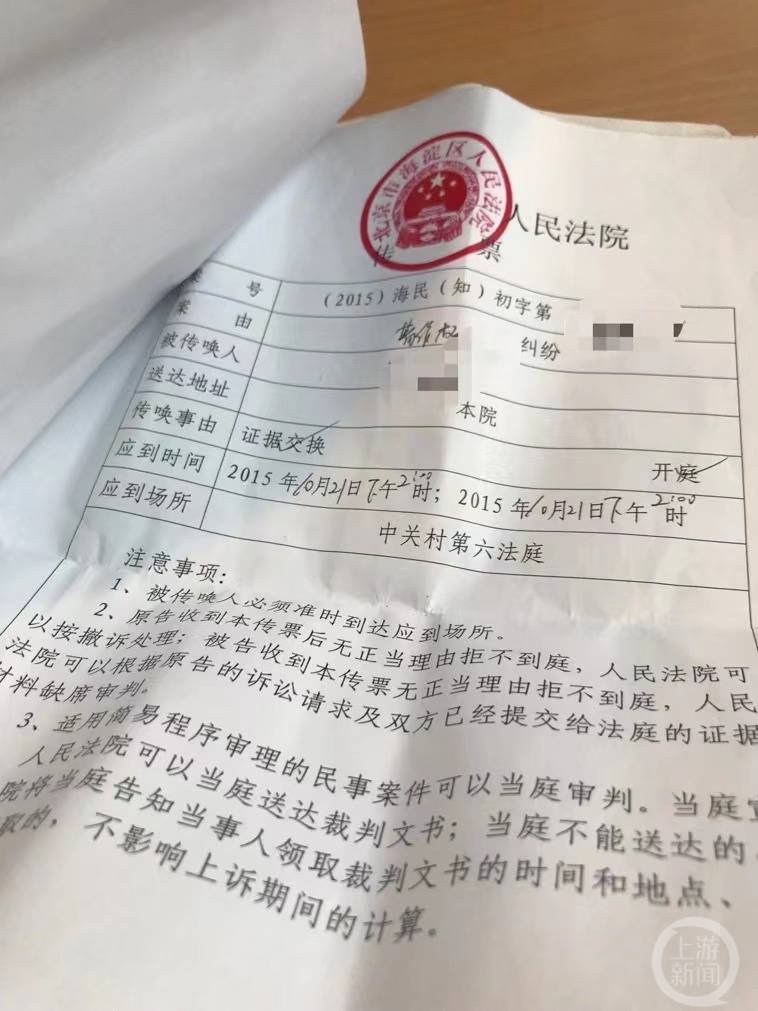 北京市海淀区人民法院
人民法院
传票
案 号 （2015）海民（知）初字第
案 由 著作权 纠纷
被传唤人
送达地址 本院
传唤事由 证据交换 开庭
应到时间 2015年10月21日下午2:00时；2015年10月21日下午2:00时
应到场所 中关村第六法庭
注意事项：
1、被传唤人必须准时到达应到场所。
2、原告收到本传票后无正当理由拒不到庭，人民法院可
以按撤诉处理；被告收到本传票无正当理由拒不到庭，人民
法院可以根据原告的诉讼请求及双方已经提交给法庭的证据
材料缺席审判。
3、适用简易程序审理的民事案件可以当庭审判。当庭宣
人民法院可以当庭送达裁判文书；当庭不能送达的
院将当庭告知当事人领取裁判文书的时间和地点、
取的，不影响上诉期间的计算。
上游新闻